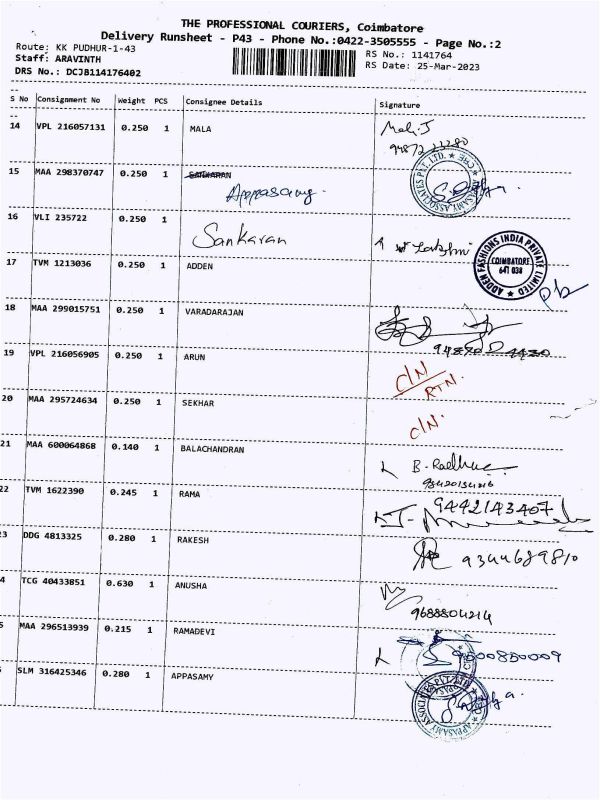 THE PROFESSIONAL COURIERS, Coimbatore
Delivery Runsheet - P43 - Phone No.:0422-3505555 - Page No.:2
Route: KK PUDHUR-1-43
RS No.: 1141764
Staff: ARAVINTH
RS Date: 25-Mar-2023
DRS No.: DCJB114176402
S No Consignment No Weight PCS Consignee Details Signature
14 VPL 216057131 0.250 1 MALA
Mala.J
15 MAA 298370747 0.250 1 SANKARAN
Appasamy.
APPASAMY ASSOCIATES PVT. LTD. ★ CBE ★
16 VLI 235722 0.250 1
Sankaran
Lakshmi
17 TVM 1213036 0.250 1 ADDEN
ADDEN FASHIONS INDIA PRIVATE LIMITED ★
COIMBATORE
641 038
18 MAA 299015751 0.250 1 VARADARAJAN
19 VPL 216056905 0.250 1 ARUN
C/N
RTN.
20 MAA 295724634 0.250 1 SEKHAR
C/N.
21 MAA 600064868 0.140 1 BALACHANDRAN
B. Radha
22 TVM 1622390 0.245 1 RAMA
9442143407
3 DDG 4813325 0.280 1 RAKESH
9344689810
4 TCG 40433851 0.630 1 ANUSHA
9688804214
5 MAA 296513939 0.215 1 RAMADEVI
9500850009
SLM 316425346 0.280 1 APPASAMY
APPASAMY ASSOCIATES PVT. LTD.